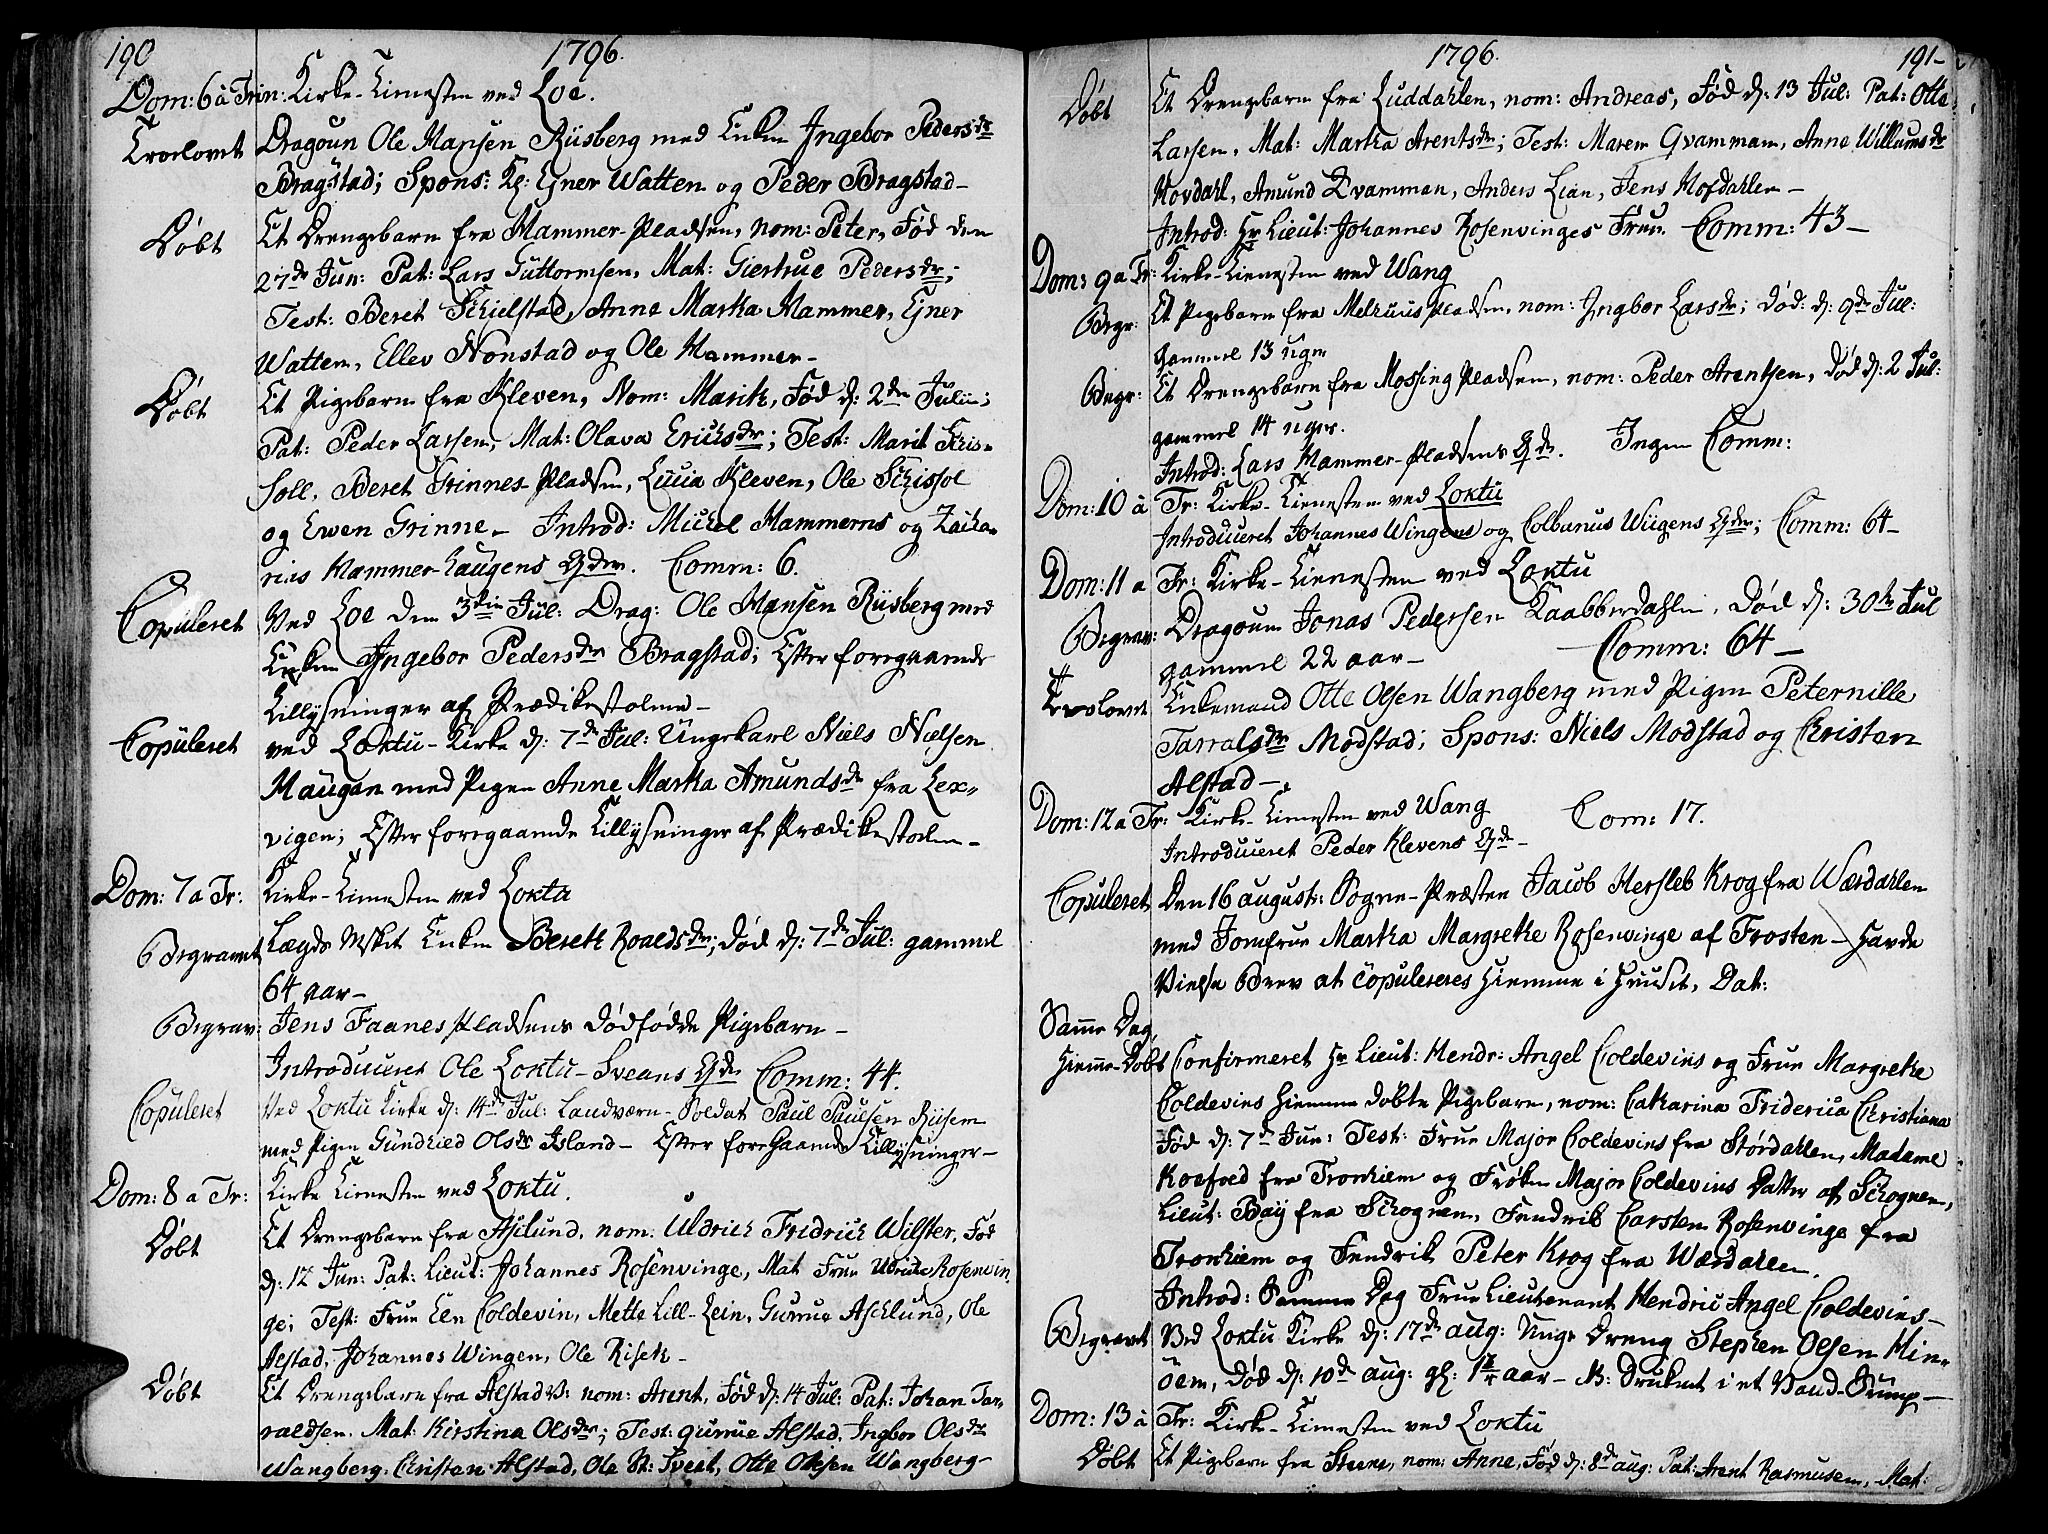 190
1796.
Dom: 6 a Trin: Kirke-Tienesten ved Loe.
Troelovet Dragoun Ole Hansen Riisberg med Enken Ingebor Pedersdr
Bragstad; Spons: Ejner Watten og Peder Bragstad-
Døbt Et Drengebarn fra Hammer-Pladsen, nom: Peter, Fød den
27de Jun: Pat: Lars Guttormsen, Mat: Giertrue Pedersdr;
Test: Beret Schielstad, Anne Marta Hammer, Ejner
Watten, Ellev Nonstad og Ole Hammer-
Døbt Et Pigebarn fra Kleven, Nom: Marith, Fød d: 2den Julii;
Pat: Peder Larsen, Mat: Olava Erichsdr; Test: Marit Schis-
soll, Beret Grinnes Pladsen, Lucia Kleven, Ole Schissol
og Ewen Grinne- Introd: Michel Hammerns og Zacha-
rias Hammer-Haugens Qdr. Comm: 6.
Copuleret Ved Loe den 3die Jul: Drag: Ole Hansen Riisberg med
Enken Ingebor Pedersdr Bragstad; Efter foregaaende
Tillysninger af Prædikestolene-
Copuleret ved Loktu-Kirke d: 7de Jul: Ungekarl Niels Nielsen
Haugan med Pigen Anne Marta Amundsdr fra Lex-
vigen; Efter foregaaende Tillysninger af Prædikestolen-
Dom: 7 a Tr: Kirke-Tienesten ved Loktu
Begravet Lægds Enken Bereth Roaldsdr; død d: 7de Jul: gammel
64 aar-
Begrav: Jens Faanes Pladsens dødfødde Pigebarn-
Introduceret Ole Loktu-Sveans Qde Comm: 44.
Copuleret Ved Loktu Kirke d: 14de Jul: Landværn-Soldat Paul Paulsen Riisem
med Pigen Gundhied Olsdr Island- Efter foregaaende Tillysninger-
Dom: 8 a Tr: Kirke Tienesten ved Loktu.
Døbt Et Drengebarn fra Asclund, nom: Uldrich Fridrich Wilster, Fød
d: 12 Jun: Pat: Lieut: Johannes Rosenvinge, Mat Frue Uldricha Rosenvin
ge; Test: Frue Elen Coldevin, Mette Lill-Lein, Gurrue Aschlund, Ole
Alstad, Johannes Wingen, Ole Riseth-
Døbt Et Drengebarn fra Alstad nom: Arent, Fød d: 14 Jul: Pat: Johan Tar-
raldsen, Mat: Kirstina Olsdr; Test: gurrue Alstad, Ingbor Olsdr
Wangberg, Christen Alstad, Ole St: Sveet, Otte Olsen Wangberg-
1796.
191-
Døbt Et Drengebarn fra Luddahlen, nom: Andreas, Fød d: 13 Jul: Pat: Otte
Larsen, Mat: Martha Arentsdr; Test: Maren Qvamman, Anne Willumsdr
Hovdahl, Amund Qvamman, Anders Lian, Jens Hofdahlen-
Introd: Hr Lieut: Johannes Rosenvinges Frue. Comm: 43-
Dom: 9 a Tr: Kirke-Tienesten ved Wang
Begr: Et Pigebarn fra Melhuus Pladsen, nom: Ingbor Larsdr; død: d: 9de Jul:
gammel 13 uger
Begr: Et Drengebarn fra Mossing Pladsen, nom: Peder Arentsen, død d: 2 Jul:
gammel 14 uger.
Introd: Lars Hammer-Pladsens Qde. Ingen Comm:
Dom: 10 a Tr: Kirke-Tienesten ved Loktu
Introduceret Johannes Wingens og Colbanus Wiigens Qdr; Comm: 64-
Dom: 11 a Tr: Kirke-Tienesten ved Loktu
Begrav: Dragoun Jonas Pedersen Kaabberdahlen, død d: 30te Jul
gammel 22 aar- Comm: 64-
Troelovet Enkemand Otte Olsen Wangberg med Pigen Peternille
Tarralsdr Modstad; Spons: Niels Modstad og Christen
Alstad-
Dom: 12 a Tr: Kirke-Tienesten ved Wang Com: 17.
Introduceret Peder Klevens Qde-
Copuleret Den 16 august: Sogne-Præsten Jacob Hersleb Krog fra Wærdahlen
med Jomfrue Martha Margrethe Rosenvinge af Frosten- Havde
Vielse Brev at copuleres hiemme i Huuset, Dat:
Samme Dag
Hiemme-Døbt Confirmeret Hr Lieut: Hendr: Angel Coldevins og Frue Margrethe
Coldevins Hiemme døbte Pigebarn, nom: Catharina Friderica Christiana
Fød d: 7de Jun: Test: Frue Major Coldevins fra Størdahlen, Madame
Koefoed fra Tronhiem og Frøken Major Coldevins Datter af Schognen,
Lieut: Baÿ fra Schognen, Fendrik Carsten Rosenvinge fra
Tronhiem og Fendrik Peter Krog fra Wærdahlen.
Introd: Samme Dag Frue Lieutenant Hendric Angel Coldevins-
Begravet Ved Loktu Kirke d: 17de aug: Unge Dreng Stephen Olsen Hin-
öem, død d: 10de aug: gl: aar- N: Druknet i et Vand-Dump-
Dom: 13 a Tr: Kirke-Tienesten ved Loktu
Døbt Et Pigebarn fra Steene, nom: Anne, Fød d: 8de aug: Pat: Arent Rasmusen, Mat: